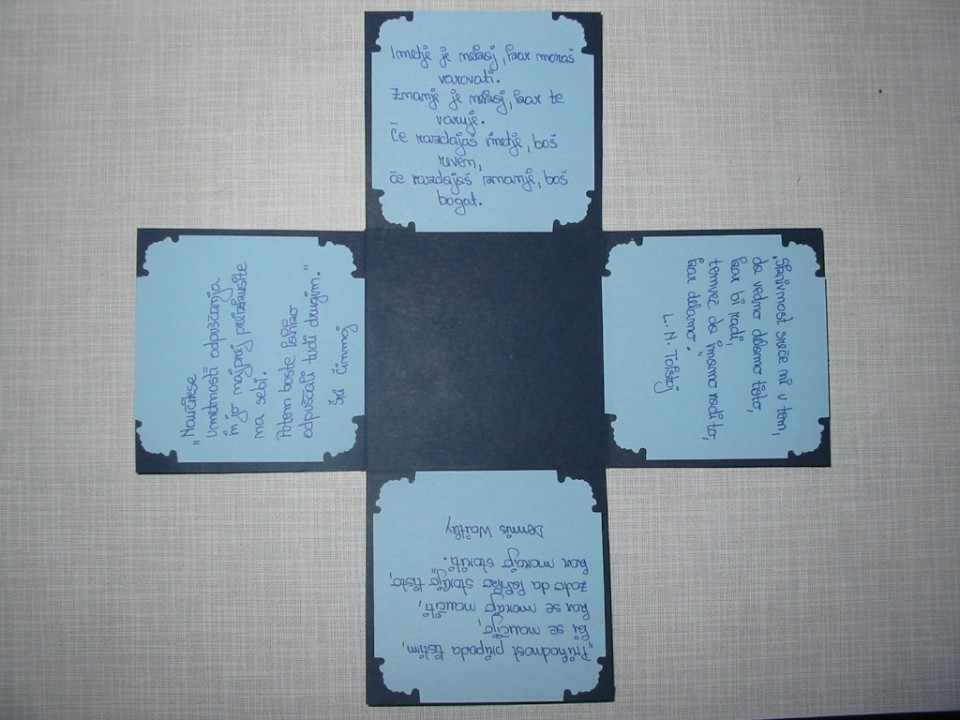 Imetje je nekaj, kar moraš
varovati.
Znanje je nekaj, kar te
varuje.
Če razdajaš imetje, boš
reven,
če razdajaš znanje, boš
bogat.
"Naučite se
umetnosti odpuščanja
in jo najprej preizkusite
na sebi.
Potem boste lahko
odpuščali tudi drugim."
Šri Činmoj
"Skrivnost sreče ni v tem,
da vedno delamo tisto,
kar bi radi,
temveč da imamo radi to,
kar delamo."
L. N. Tolstoj
"Prihodnost pripada tistim,
ki se naučijo,
kar se morajo naučiti,
zato da lahko storijo tisto,
kar morajo storiti."
Dennis Waitley